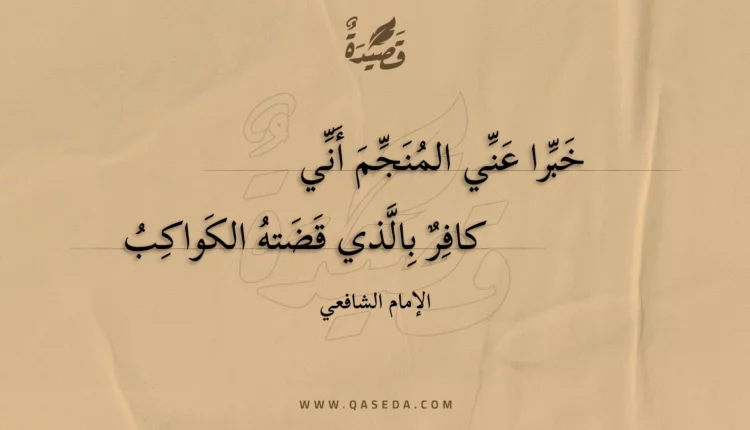 قَصِيدَةٌ
خَبِّرا عَنِّي المُنَجِّمَ أَنِّي
كافِرٌ بِالَّذي قَضَتهُ الكَواكِبُ
الإمام الشافعي
WWW.QASEDA.COM